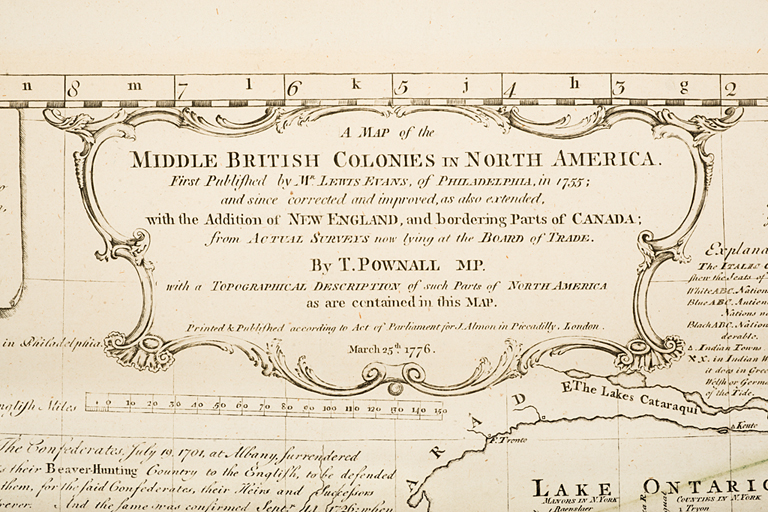 n 8 m 7 l 6 k 5 j 4 h 3 g 2
A MAP of the
MIDDLE BRITISH COLONIES IN NORTH AMERICA.
First Publiſhed by Mr. LEWIS EVANS, of PHILADELPHIA, in 1755;
and since corrected and improved, as also extended,
with the Addition of NEW ENGLAND, and bordering Parts of CANADA;
from ACTUAL SURVEYS now lying at the BOARD of TRADE.
By T. POWNALL MP.
with a TOPOGRAPHICAL DESCRIPTION of such Parts of NORTH AMERICA
as are contained in this MAP.
Printed & Publiſhed according to Act of Parliament for J. Almon in Piccadilly, London.
March 25th. 1776.
in Philadelphia
The ITALIC
ſhew the Seats of
White ABC. Nation
Blue ABC. Antien
Nations
Black ABC. Nation
derable.
Indian Towns
N.X. in Indian W
it does in Gree
Welſh or Germa
of the Tide.
Engliſh Miles
10 20 30 40 50 60 70 80 90 100 110 120 130 140 150
The Confederates, July 19, 1701, at Albany, ſurrendered
their Beaver-Hunting Country to the Engliſh, to be defended
them, for the ſaid Confederates, their Heirs and Succeſſors
And the same was confirmed Sepr. 14, 1726; when
A R A D E
The Lakes Cataraqui
Kente
F. Tronto
LAKE ONTARIO
MANORS IN N. YORK
1 Renslaer
COUNTIES IN N. YORK
1 Tryon